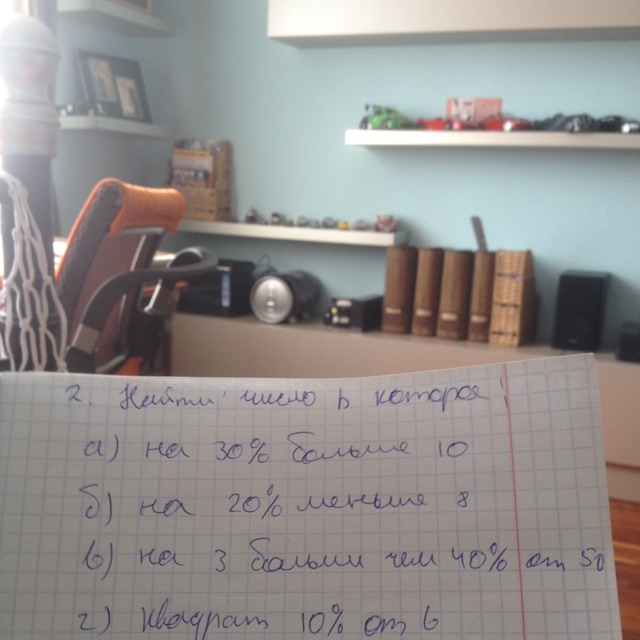 2. Найти число b которое:
а) на 30% больше 10
б) на 20% меньше 8
в) на 3 больши чем 40% от 50
г) квадрат 10% от 6